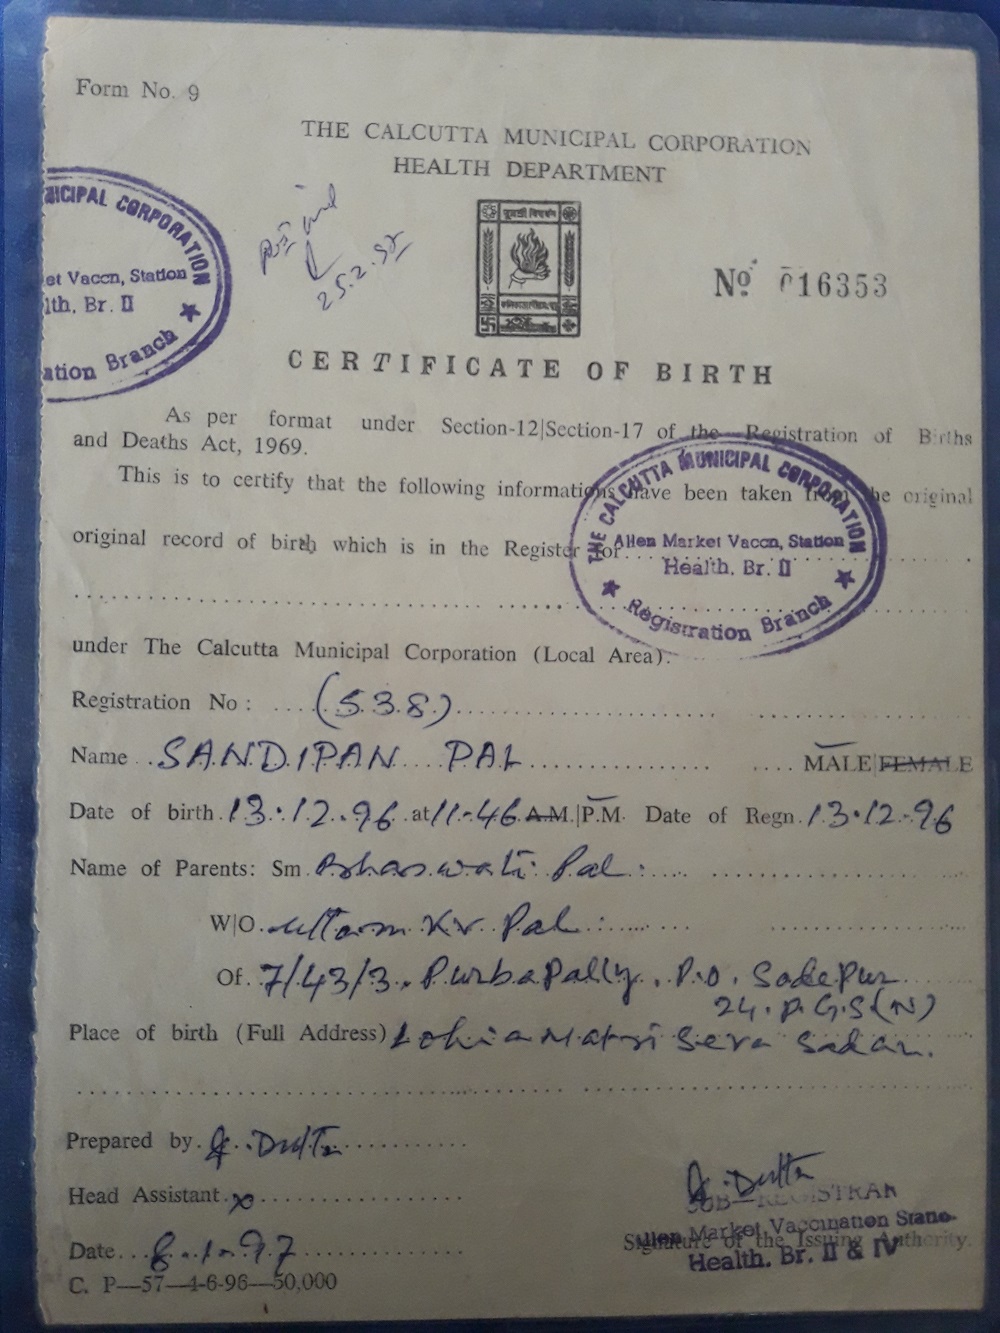 Form No. 9
THE CALCUTTA MUNICIPAL CORPORATION
HEALTH DEPARTMENT
NICIPAL CORPORATION
et Vaccn, Station
lth. Br. II
ation Branch
No 016353
CERTIFICATE OF BIRTH
As per format under Section-12|Section-17 of the Registration of Births
and Deaths Act, 1969.
This is to certify that the following informations have been taken from the original
original record of birth which is in the Register for
THE CALCUTTA MUNICIPAL CORPORATION
Allen Market Vaccn, Station
Health. Br. II
Registration Branch
under The Calcutta Municipal Corporation (Local Area).
Registration No : (538)
Name SANDIPAN PAL MALE|FEMALE
Date of birth 13.12.96 at 11-46 A.M.|P.M. Date of Regn. 13.12.96
Name of Parents: Sm Bhaswati Pal
W|O. Uttam Kr. Pal
Of. 7/43/3, Purbapally, P.O. Sodepur
24. P.G.S (N)
Place of birth (Full Address) Lohia Matri Seva Sadan.
Prepared by. Dutta
Head Assistant. x
Date 8.1.97
Dutta
SUB-REGISTRAR
Allen Market Vaccination Statio
Signature of the Issuing Authority.
Health. Br. II & IV
C. P—57—4-6-96—50,000